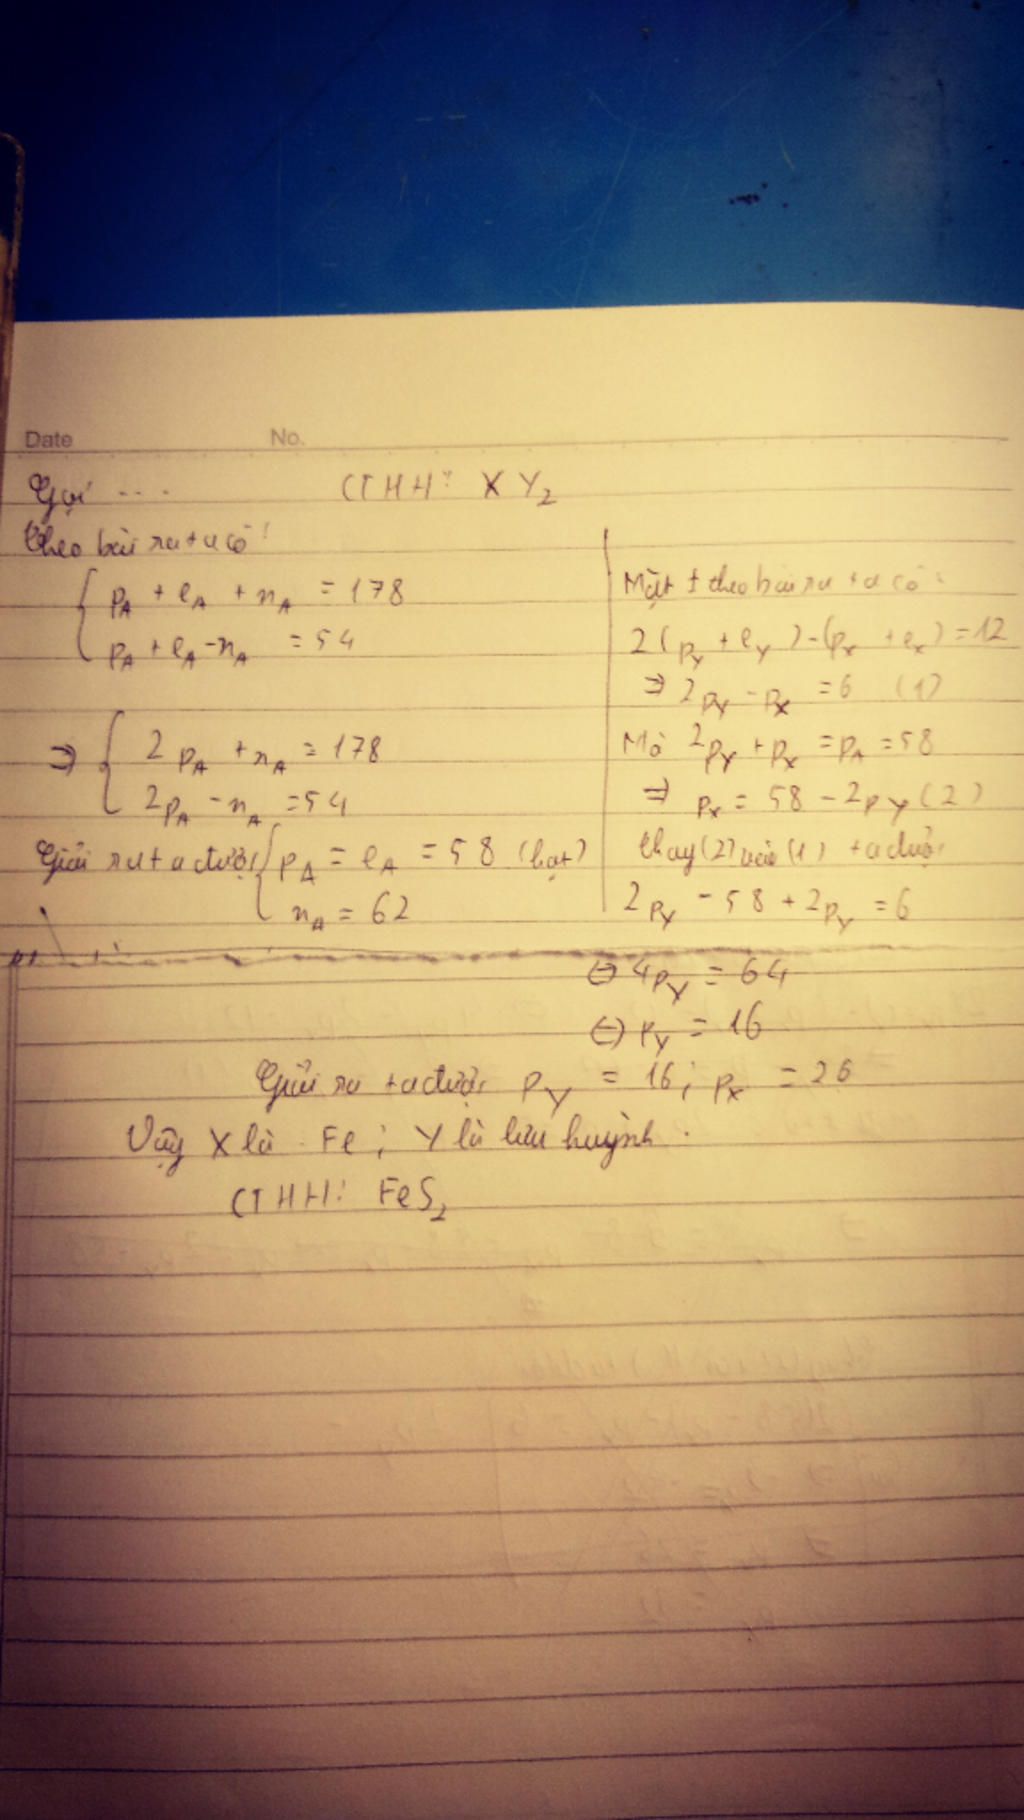 Date No.
Gọi ... CTHH: XY₂
Theo bài ra ta có:
{ pA + eA + nA = 178
pA + eA - nA = 54
⇒ { 2pA + nA = 178
2pA - nA = 54
Giải ra ta được { pA = eA = 58 (hạt)
nA = 62
Mặt ≠ theo bài ra ta có:
2(pY + eY) - (pX + eX) = 12
⇒ 2pY - pX = 6 (1)
Mà 2pY + pX = pA = 58
⇒ pX = 58 - 2pY (2)
Thay (2) vào (1) ta được
2pY - 58 + 2pY = 6
⇔ 4pY = 64
⇔ pY = 16
Giải ra ta được pY = 16; pX = 26
Vậy X là Fe; Y là lưu huỳnh.
CTHH: FeS₂